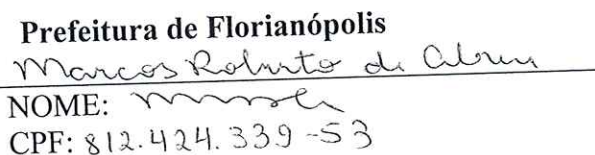 Prefeitura de Florianópolis
Marcos Roberto de Abreu
NOME:
CPF: 812.424.339-53